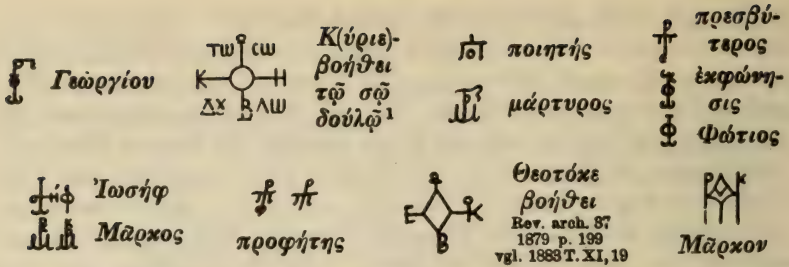 Γεωργίου
τω σω
Κ Η
Δχ Β Λω
Κ(ύριε)-
βοήθει
τῷ σῷ
δούλῳ̃ 1
ποιητής
μάρτυρος
πρεσβύ-
τερος
ἐκφώνη-
σις
Φώτιος
Ἰωσήφ
Μᾶρκος
προφήτης
Ε Κ
Β
Θεοτόκε
βοήθει
Rev. arch. 37
1879 p. 199
vgl. 1883 T. XI, 19
Μᾶρκου